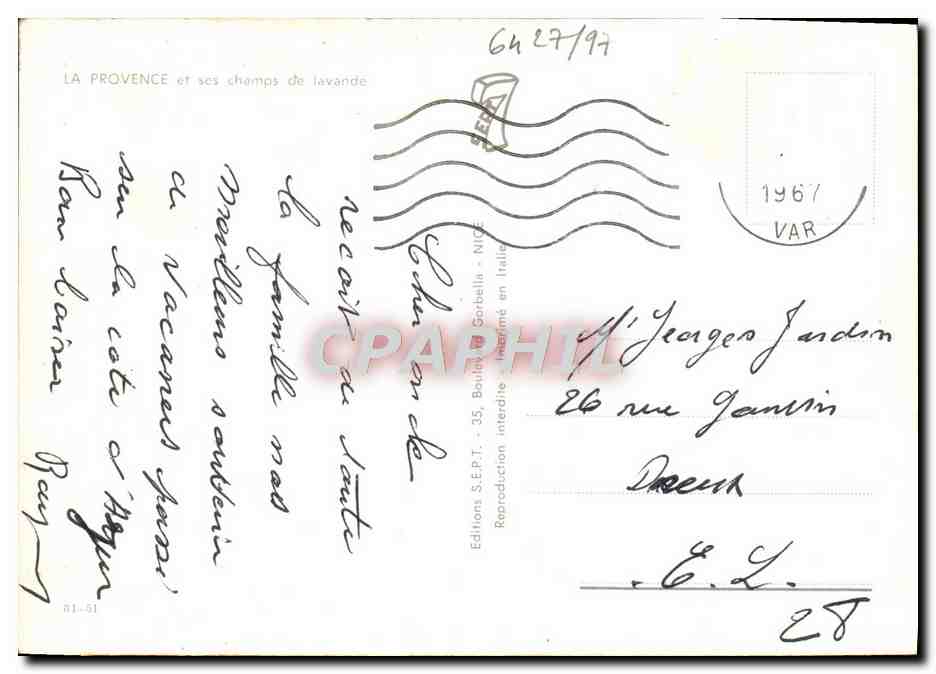 6427/97
LA PROVENCE et ses champs de lavande
SEPT
1967
VAR
Cher oncle
recoit de toute
la famille nos
meilleurs souvenir
de vacances passé
sur la cote d'Azur
Bon baiser
Editions S.E.P.T. - 35, Boulevard Gorbella - NICE
Reproduction interdite - Imprimé en Italie
CPAPHIL
Mr Georges Jardin
26 rue
Dreux
E. L.
28